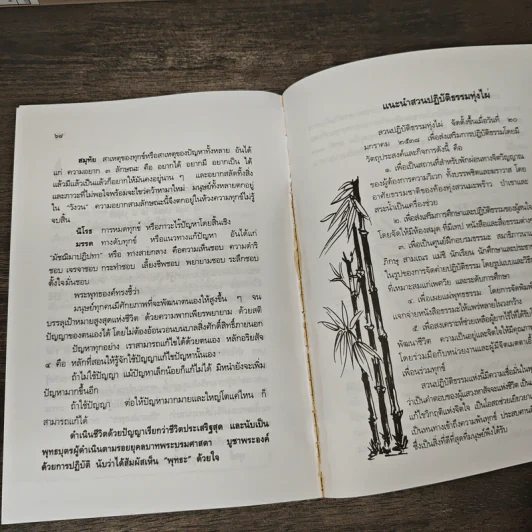 ๖๘
สมุทัย สาเหตุของทุกข์หรือสาเหตุของปัญหาทั้งหลาย อันได้
แก่ ความอยาก ๓ ลักษณะ คือ อยากได้ อยากมี อยากเป็น ได้
แล้วมีแล้วเป็นแล้วก็อยากให้มันคงอยู่นาน ๆ และอยากสลัดทิ้งสิ่ง
และภาวะที่ไม่พอใจพร้อมจะไขว่คว้าหามาใหม่ มนุษย์ทั้งหลายตกอยู่
ใน "วังวน" ความอยากสามลักษณะนี้จึงตกอยู่ในห้วงความทุกข์ไม่รู้
จบสิ้น
นิโรธ การหมดทุกข์ หรือภาวะไร้ปัญหาโดยสิ้นเชิง
มรรค ทางดับทุกข์ หรือแนวทางแก้ปัญหา อันได้แก่
"มัชฌิมาปฏิปทา" หรือ ทางสายกลาง คือความเห็นชอบ ความดำริ
ชอบ เจรจาชอบ กระทำชอบ เลี้ยงชีพชอบ พยายามชอบ ระลึกชอบ
ตั้งใจมั่นชอบ
พระพุทธองค์ทรงชี้ว่า
มนุษย์ทุกคนมีศักยภาพที่จะพัฒนาตนเองให้สูงขึ้น ๆ จน
บรรลุเป้าหมายสูงสุดแห่งชีวิต ด้วยความพากเพียรพยายาม ด้วยสติ
ปัญญาของตนเองได้ โดยไม่ต้องอ้อนวอนบนบาลสิ่งศักดิ์สิทธิ์ภายนอก
ปัญหาทุกอย่าง เราสามารถแก้ไขได้ด้วยตนเอง หลักอริยสัจ
๔ คือ หลักที่สอนให้รู้จักใช้ปัญญาแก้ไขปัญหานั้นเอง
ถ้าไม่ใช้ปัญญา แม้ปัญหาเล็กน้อยก็แก้ไม่ได้ มีหน้ายังจะเพิ่ม
ปัญหามากขึ้นอีก
ถ้าใช้ปัญญา ต่อให้ปัญหามากมายและใหญ่โตแค่ไหน ก็
สามารถแก้ได้
ดำเนินชีวิตด้วยปัญญาเรียกว่าชีวิตประเสริฐสุด และนับเป็น
พุทธบุตรผู้ดำเนินตามรอยยุคลบาทพระบรมศาสดา บูชาพระองค์
ด้วยการปฏิบัติ นับว่าได้สัมผัสเห็น "พุทธะ" ด้วยใจ
แนะนำสวนปฏิบัติธรรมทุ่งไผ่
สวนปฏิบัติธรรมทุ่งไผ่ จัดตั้งขึ้นเมื่อวันที่ ๒๐
มกราคม ๒๕๓๘ เพื่อส่งเสริมการปฏิบัติธรรมโดยมี
วัตถุประสงค์และกิจการดังนี้ คือ
๑. เพื่อเป็นสถานที่สำหรับพักผ่อนทางจิตวิญญาณ
ของผู้ต้องการความวิเวก ทั้งบรรพชิตและฆราวาส โดย
อาศัยธรรมชาติของท้องทุ่งสวนมะพร้าว ป่าเขาและ
สระน้ำเป็นเครื่องช่วย
๒. เพื่อส่งเสริมการศึกษาและปฏิบัติธรรมของผู้สนใจ
โดยจัดให้มีห้องสมุด ที่มีเทป หนังสือและสื่อธรรมะต่าง
๓. เพื่อเป็นศูนย์ฝึกอบรมธรรมะ สมาธิภาวนา
ภิกษุ สามเณร แม่ชี นักเรียน นักศึกษาและประชาชน
ในรูปของการจัดค่ายปฏิบัติธรรม โดยรูปแบบและวิธี
ที่เหมาะสมแก่เพศวัย และระดับการศึกษา
๔. เพื่อเผยแผ่พุทธธรรม โดยการจัดพิมพ์
แจกจ่ายหนังสือธรรมะให้แพร่หลายในวงกว้าง
๕. เพื่อสงเคราะห์ช่วยเหลือผู้ยากไร้ให้ได้รับ
พัฒนาชีวิต ความเป็นอยู่และจิตใจให้มีคุณ
โดยร่วมมือกับหน่วยงานและผู้มีจิตเมตตา
เพื่อนร่วมทุกข์
สวนปฏิบัติธรรมแห่งนี้มีความเชื่อมั่นใน
ว่าเป็นคำตอบของผู้แสวงหาสัจจะแห่งชีวิต
แก้ไขวิกฤติแห่งจิตใจ เป็นโอสถช่วยเยียวยา
เป็นหนทางเข้าถึงความพ้นทุกข์ ประสบความ
ซึ่งเป็นสิ่งที่ดีที่สุดที่มนุษย์พึงได้รับ